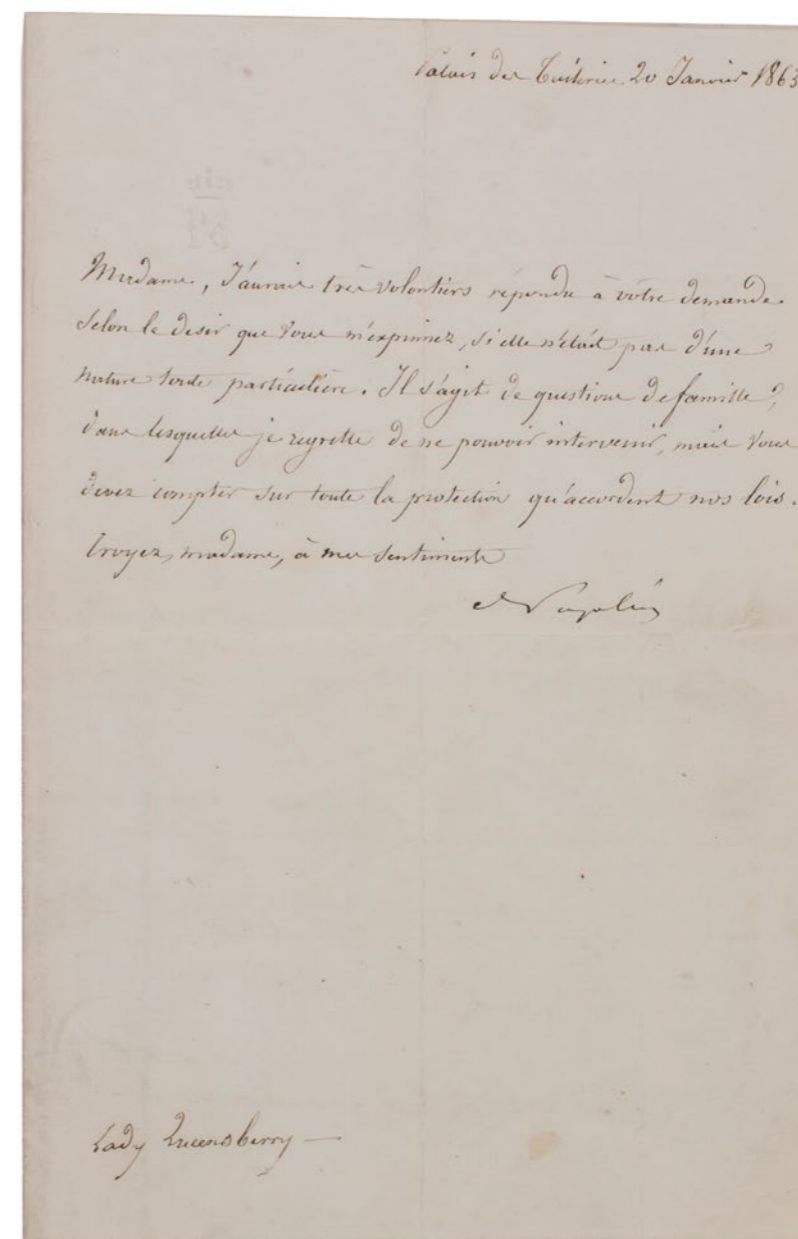 Palais des Tuileries 20 Janvier 1863
Madame, J'aurais très volontiers répondu à votre demande
selon le desir que vous m'exprimez, si elle n'était pas d'une
nature toute particulière. Il s'agit de questions de famille,
dans lesquelles je regrette de ne pouvoir intervenir, mais vous
devez compter sur toute la protection qu'accordent nos lois.
Croyez, madame, à mes sentiments
Napoléon
Lady Queensberry —